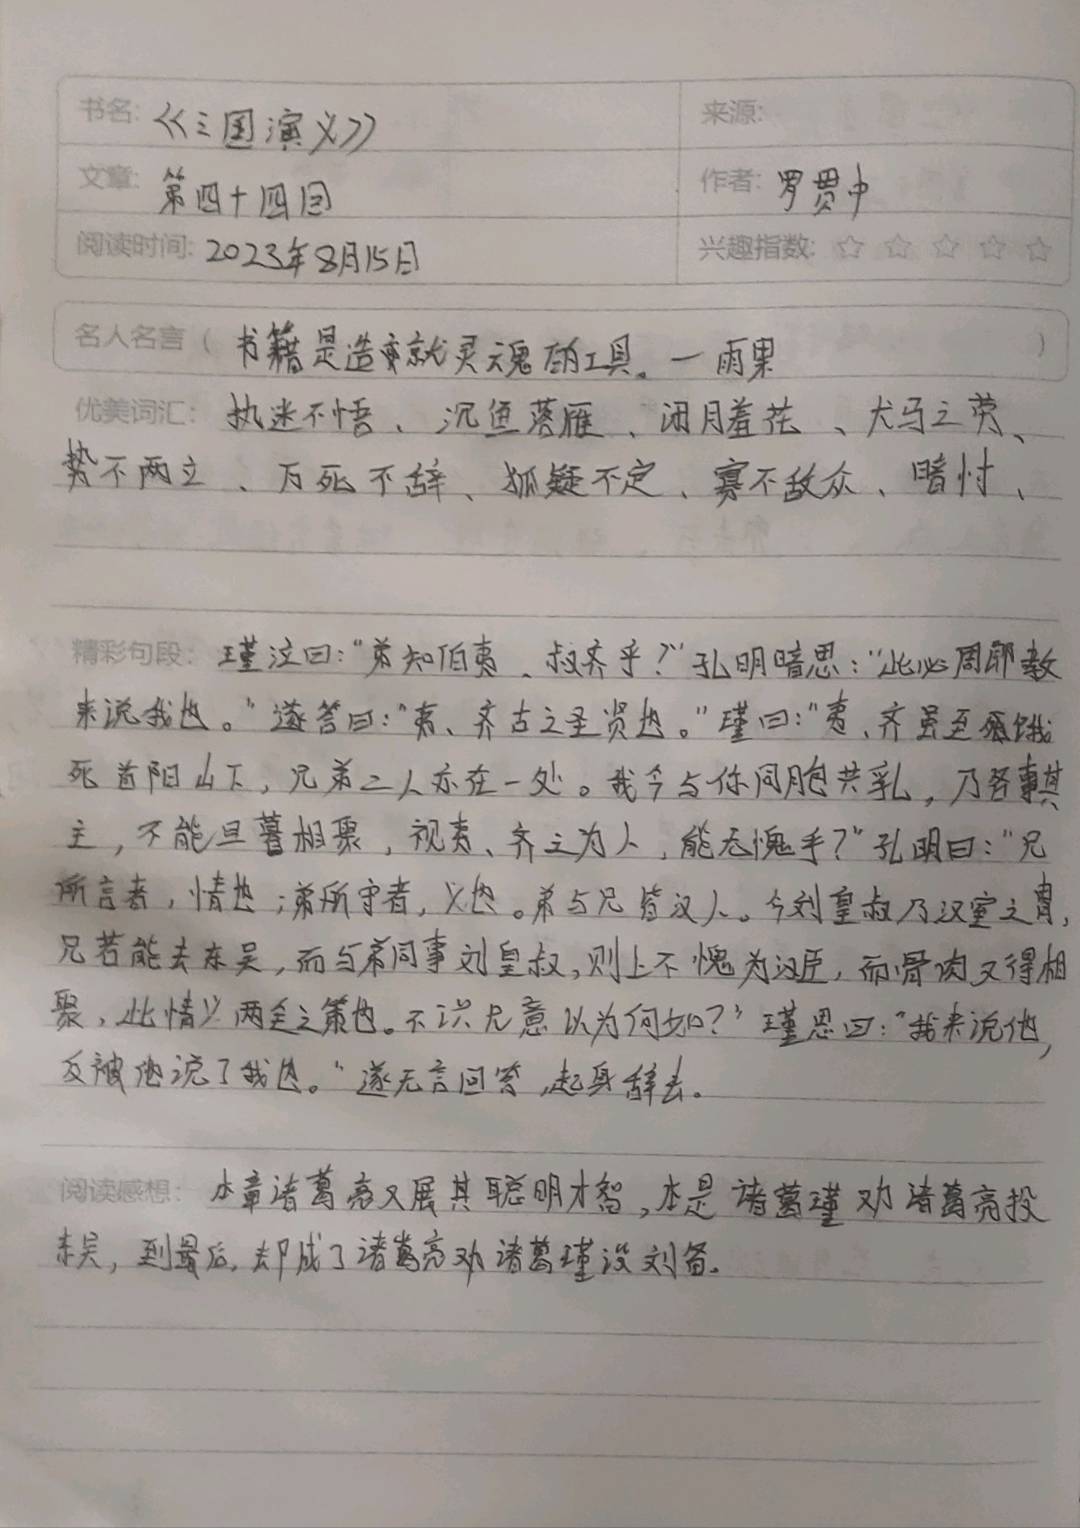 书名: 《三国演义》 来源:
文章: 第四十四回 作者: 罗贯中
阅读时间: 2023年8月15日 兴趣指数: ☆ ☆ ☆ ☆ ☆
名人名言 ( 书籍是造就灵魂的工具。—雨果 )
优美词汇: 执迷不悟、沉鱼落雁、闭月羞花、犬马之劳、
势不两立、万死不辞、狐疑不定、寡不敌众、暗忖、
精彩句段: 瑾泣曰:“弟知伯夷、叔齐乎?”孔明暗思:“此必周郎教
来说我也。”遂答曰:“夷、齐古之圣贤也。”瑾曰:“夷、齐虽至饿
死首阳山下,兄弟二人亦在一处。我今与你同胞共乳,乃各事其
主,不能旦暮相聚,视夷、齐之为人,能无愧乎?”孔明曰:“兄
所言者,情也;弟所守者,义也。弟与兄皆汉人。今刘皇叔乃汉室之胄,
兄若能去东吴,而与弟同事刘皇叔,则上不愧为汉臣,而骨肉又得相
聚,此情义两全之策也。不识兄意以为何如?”瑾思曰:“我来说他,
反被他说了我也。”遂无言回答,起身辞去。
阅读感想: 本章诸葛亮又展其聪明才智,本是诸葛瑾劝诸葛亮投
东吴,到最后,却成了诸葛亮劝诸葛瑾投刘备。